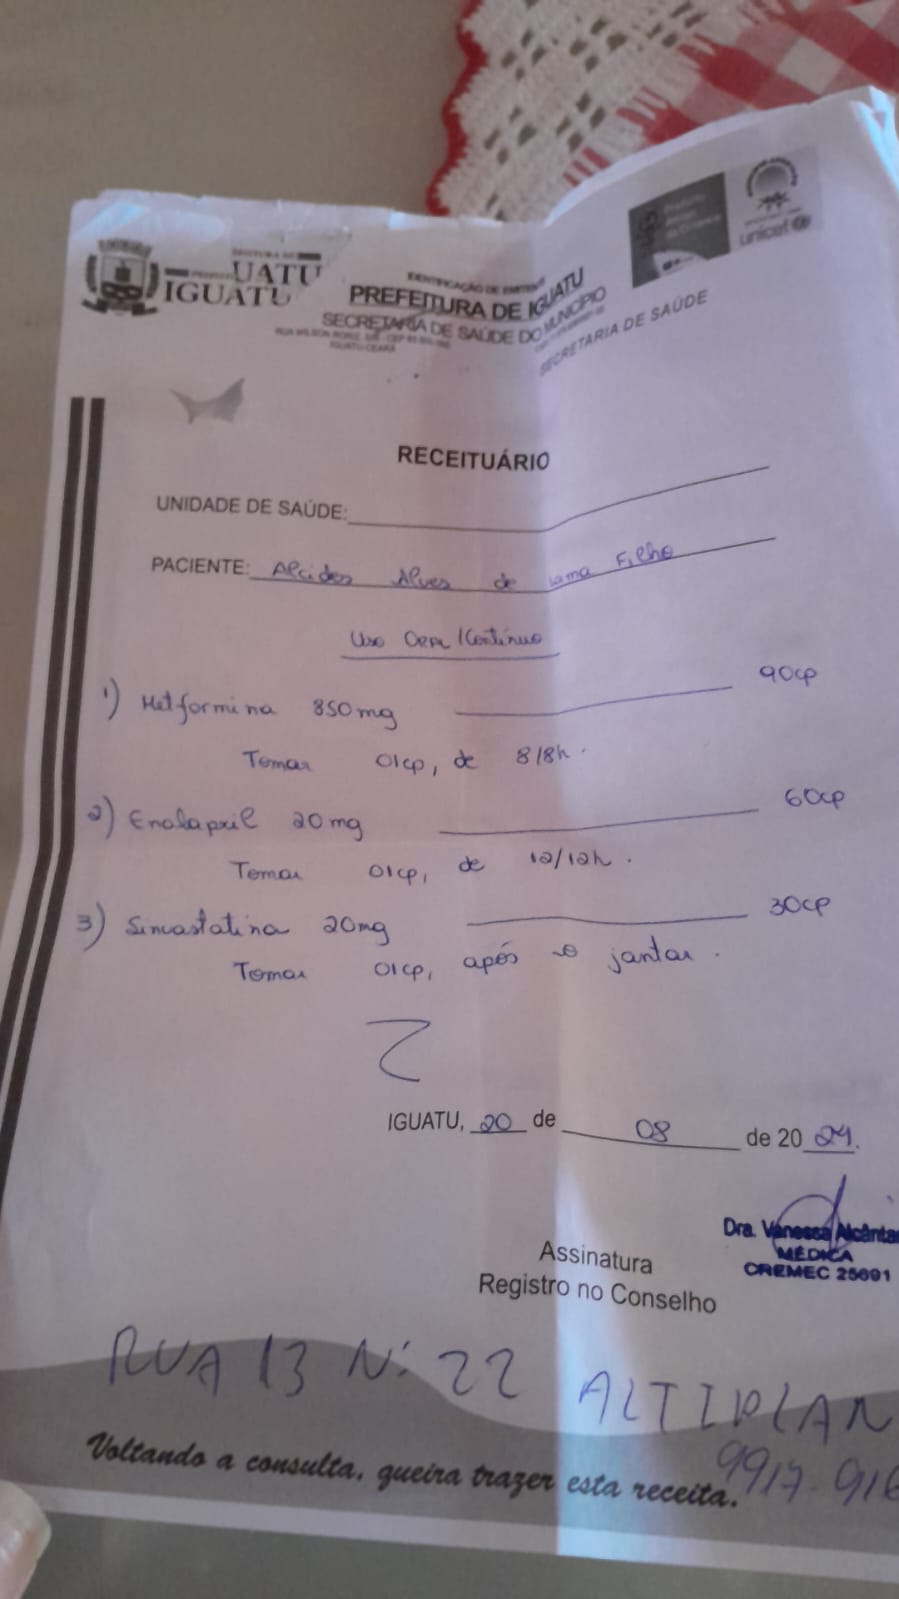 UATU
IGUATU
IDENTIFICAÇÃO DE EMITENTE
PREFEITURA DE IGUATU
SECRETARIA DE SAÚDE DO MUNICÍPIO
IGUATU-CEARÁ
unicef
SECRETARIA DE SAÚDE
RECEITUÁRIO
UNIDADE DE SAÚDE:
PACIENTE: Alcides Alves de Lima Filho
Uso Oral/Contínuo
1) Metformina 850mg 90cp
Tomar 01cp, de 8/8h.
2) Enalapril 20mg 60cp
Tomar 01cp, de 12/12h.
3) Sinvastatina 20mg 30cp
Tomar 01cp, após o jantar.
IGUATU, 20 de 08 de 2024.
Dra. Vanessa Alcânta
MÉDICA
CREMEC 25691
Assinatura
Registro no Conselho
RUA 13 N: 22 ALTIPLAN
9917-916
Voltando a consulta, queira trazer esta receita.